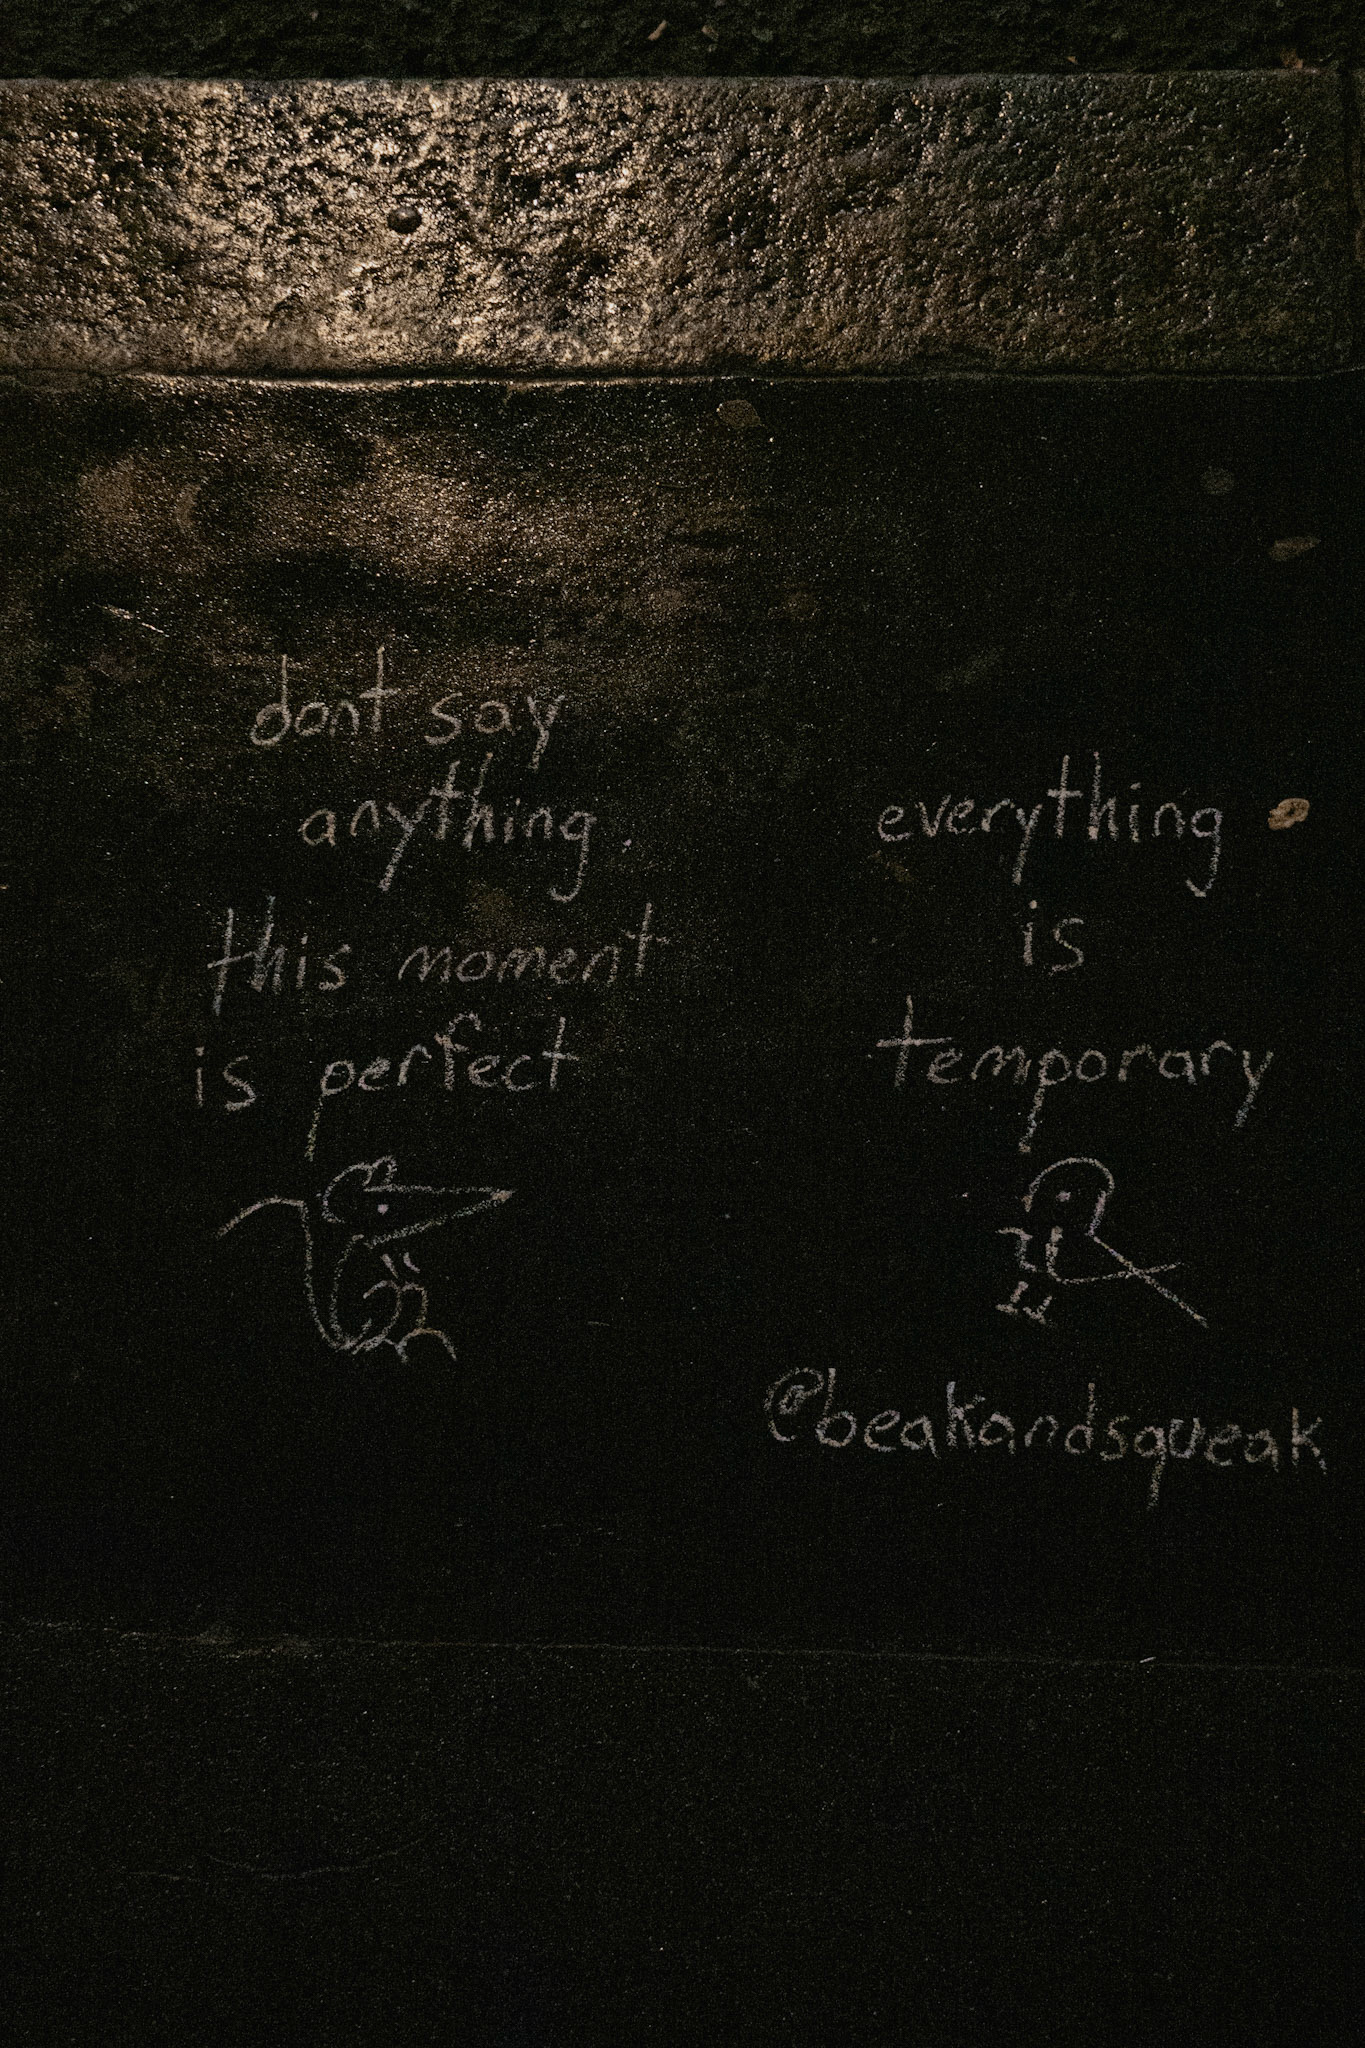 dont say
anything.
this moment
is perfect
everything
is
temporary
@beakandsqueak